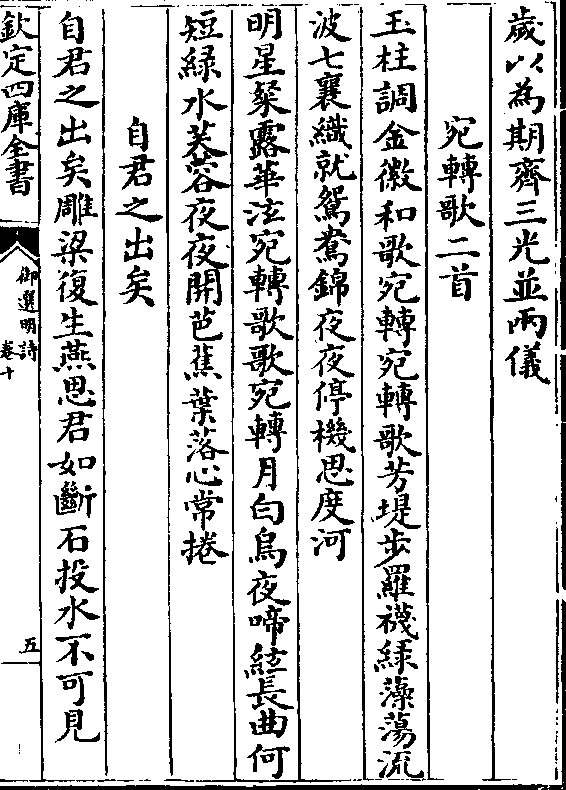 歲以為期齊三光並兩儀
宛轉歌二首
玉柱調金徽和歌宛轉宛轉歌芳堤步羅襪綠藻蕩流
波七襄織就鴛鴦錦夜夜停機思度河
明星粲露華泫宛轉歌歌宛轉月白烏夜啼絃長曲何
短綠水芙蓉夜夜開芭蕉葉落心常捲
自君之出矣
自君之出矣雕梁復生燕思君如斷石投水不可見
欽定四庫全書
御選明詩
卷十
五